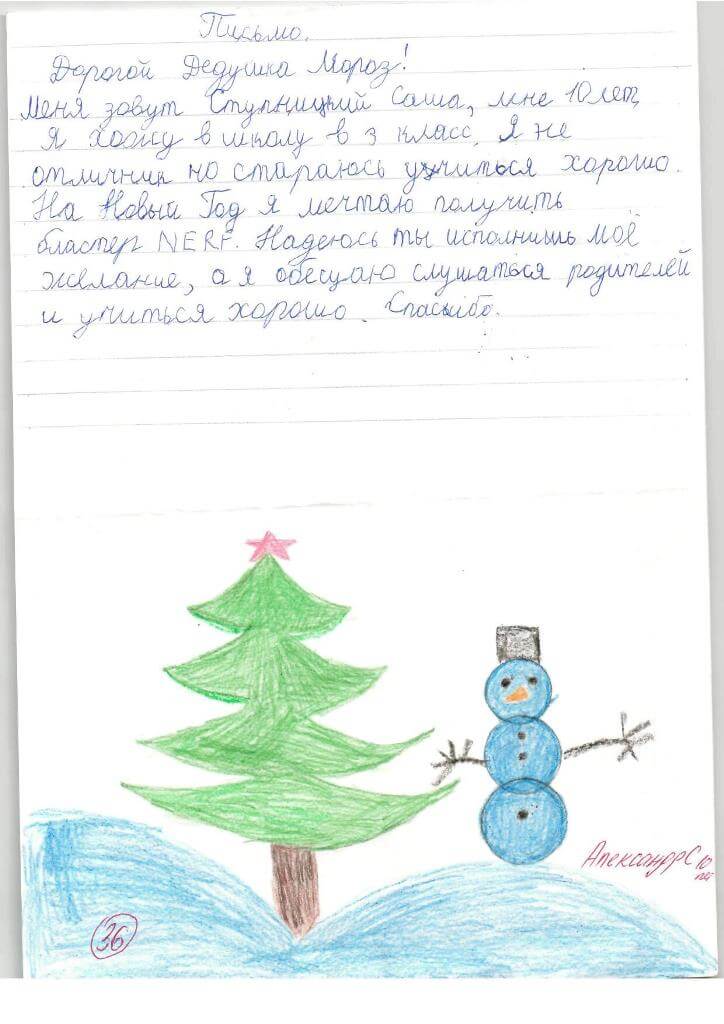 Письмо.
Дорогой Дедушка Мороз!
Меня зовут Ступницкий Саша, мне 10 лет,
я хожу в школу в 3 класс. Я не
отличник но стараюсь учиться хорошо.
На Новый Год я мечтаю получить
бластер NERF. Надеюсь ты исполнишь моё
желание, а я обещаю слушаться родителей
и учиться хорошо. Спасибо.
Александр С 10
лет
36